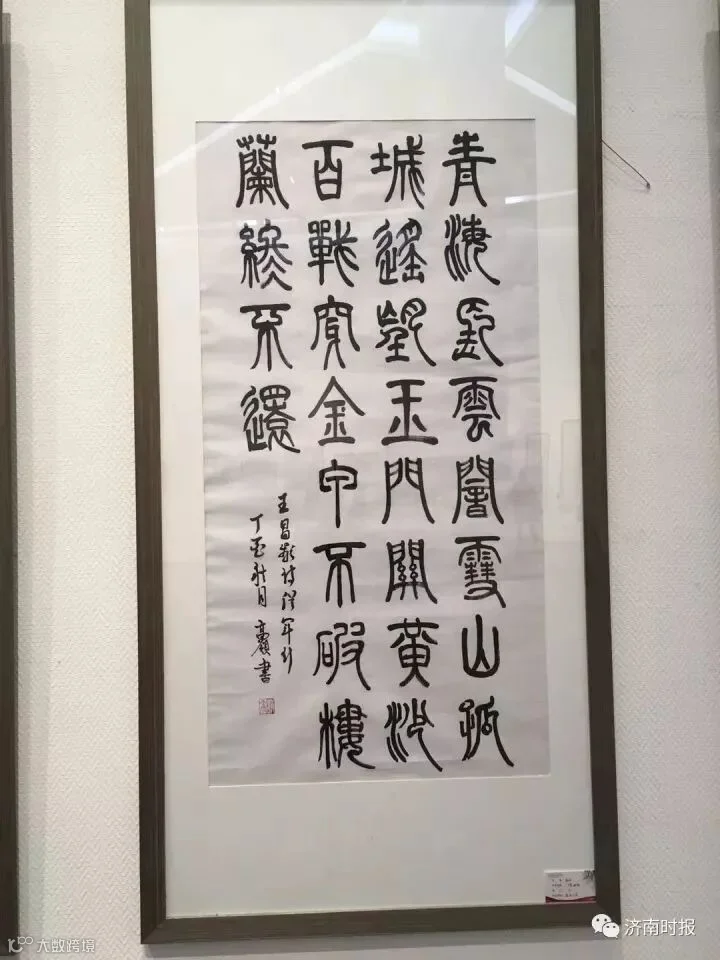 青海長雲闇雪山孤
城遙望玉門關黃沙
百戰穿金甲不破樓
蘭終不還
王昌齡詩從軍行
丁酉秋月 書
济南时报
大数跨境